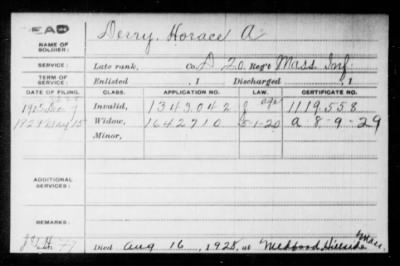 Derry, Horace A
NAME OF SOLDIER:
SERVICE: Late rank, Co. D 20 Reg't Mass. Inf.
TERM OF SERVICE: Enlisted , 1 Discharged , 1
DATE OF FILING. CLASS. APPLICATION NO. LAW. CERTIFICATE NO.
Invalid, 1343042 age 1119558
Widow, 1642710 5-1-20 a. 8-9-29
Minor,
ADDITIONAL SERVICES:
REMARKS:
Died Aug 16, 1928, at Medford Hillside Mass.